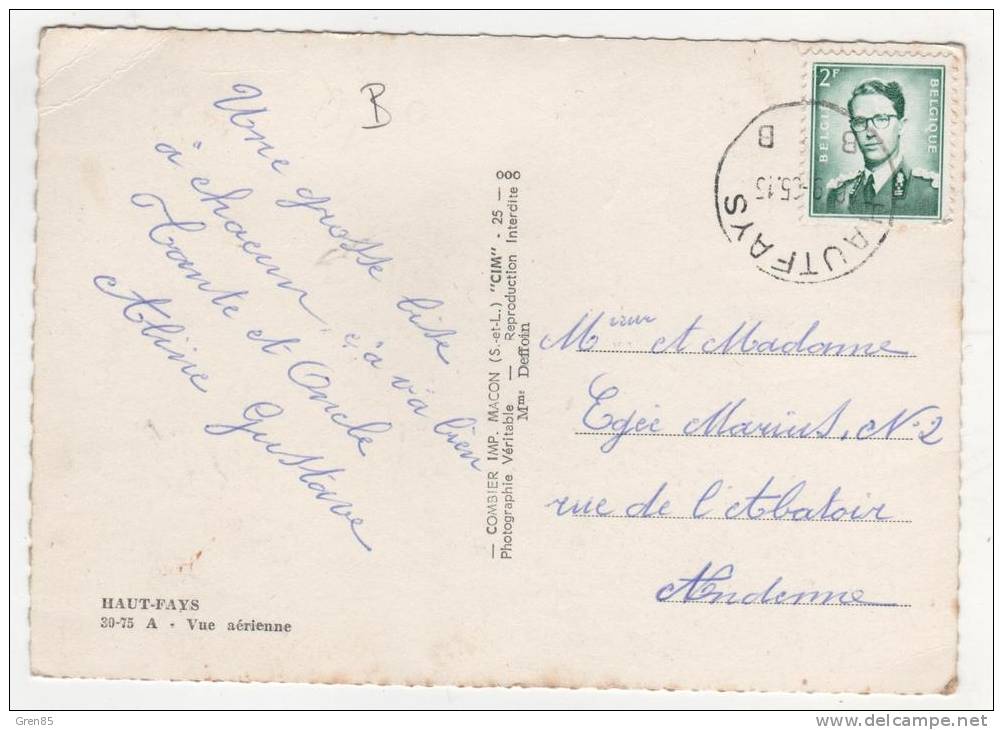 B
Une grosse bise
à chacun, ça va bien
Tante et Oncle
Aline Gustave
HAUT-FAYS
30-75 A - Vue aérienne
— COMBIER IMP. MACON (S.-et-L.) "CIM" - 25 — ooo
Photographie Véritable — Reproduction Interdite
Mme Deffoin
2F
BELGIE
BELGIQUE
HAUTFAYS
B
B
Mmeur et Madame
Egée Marius, N°2
rue de l'Abatoir
Andenne
Gren85
http://www.delcampe.net